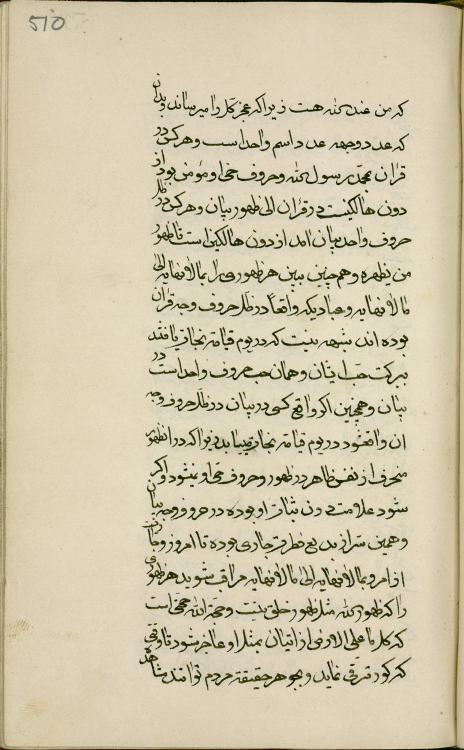 510
که من عند الله هست زیرا که عجز کل را میرساند و بدان
که عدد وجهه عدد اسم واحد است و هر کس در
قران بمحمد رسول الله و حروف حی او مؤمن بود از
دون هالک نیست در قران الی ظهور بیان و هر کس در ظل
حروف واحد بیان امد از دون هالکین است تا ظهور
من یظهره و هم چنین ببین هر ظهوری را بما لا نهایه الی
ما لا نهایه و عبادیکه واقعا در ظل حروف وجه قران
بوده اند شبهه نیست که در یوم قیامة نجات یافتند
ببرکت حب ایشان و همان حب حروف واحد است در
بیان و همچنین اکر واقع کسی در بیان در ظل حروف وجه
ان واقع شود در یوم قیامة نجات مییابد زیرا که در ان ظهور
منحرف از نفس ظاهر در ظهور و حروف حی او نمیشود و اکر
شود علامت دون ثبات او بوده در حروف وجه بیان
و همین سر از بدیع فطرت جاری بوده تا امروز و جاری است
از امروز بما لا نهایه الی ما لا نهایه مراقب شوید هر ظهوری
را که ظهور الله مثل ظهور خلق نیست و حجة الله حجتی است
که کل ما علی الارض از اتیان بمثل او عاجز شود تا وقتی
که کور ترقی نماید و بجوهر حقیقة مردم توانند مشاهده